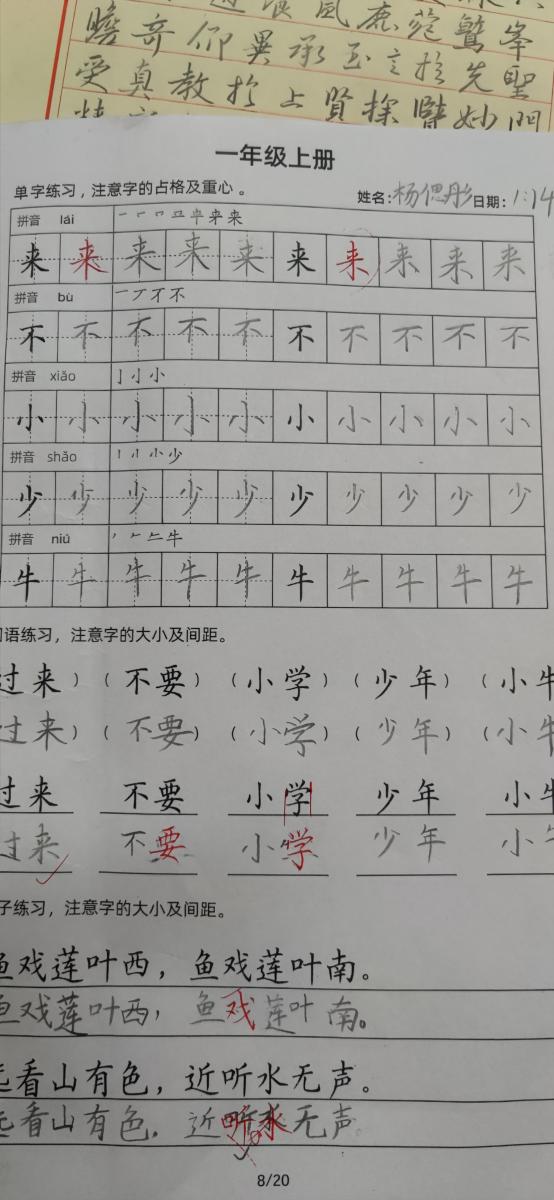 瞻奇仰異承玉言於先聖
受真教於上賢探賾妙門
一年级上册
单字练习，注意字的占格及重心。
姓名:杨偲彤日期:1:14
拼音 lái 来
来来来来来来来来来来
拼音 bù 一丆不不
不不不不不不不不不不
拼音 xiǎo 亅小小
小小小小小小小小小小
拼音 shǎo 小小少
少少少少少少少少少少
拼音 niú 牛
牛牛牛牛牛牛牛牛牛牛
语练习，注意字的大小及间距。
过来）（不要）（小学）（少年）（小牛
过来）（不要）（小学）（少年）（小牛
过来 不要 小学 少年 小牛
过来 不要 小学 少年 小牛
子练习，注意字的大小及间距。
鱼戏莲叶西，鱼戏莲叶南。
鱼戏莲叶西，鱼戏莲叶南。
远看山有色，近听水无声。
远看山有色，近听水无声
8/20